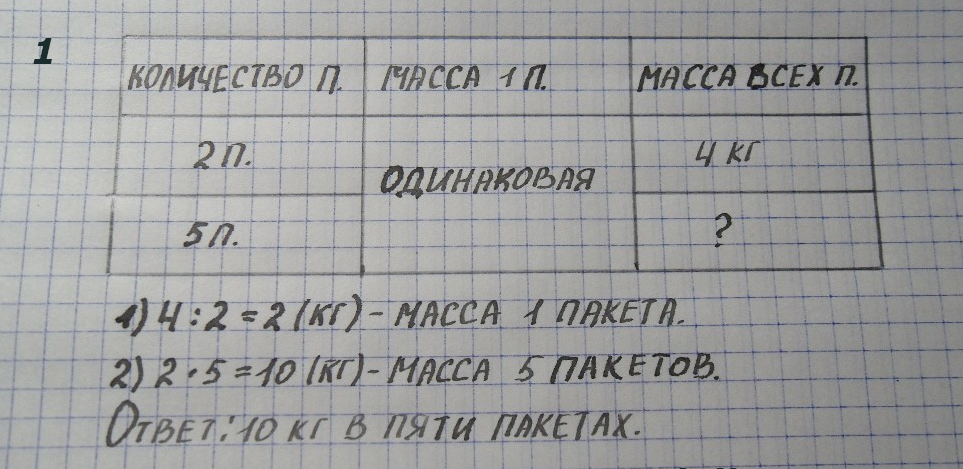 1
КОЛИЧЕСТВО П. МАССА 1 П. МАССА ВСЕХ П.
2 П. ОДИНАКОВАЯ 4 КГ
5 П. ?
1) 4 : 2 = 2 (КГ) - МАССА 1 ПАКЕТА.
2) 2 · 5 = 10 (КГ) - МАССА 5 ПАКЕТОВ.
ОТВЕТ: 10 КГ В ПЯТИ ПАКЕТАХ.